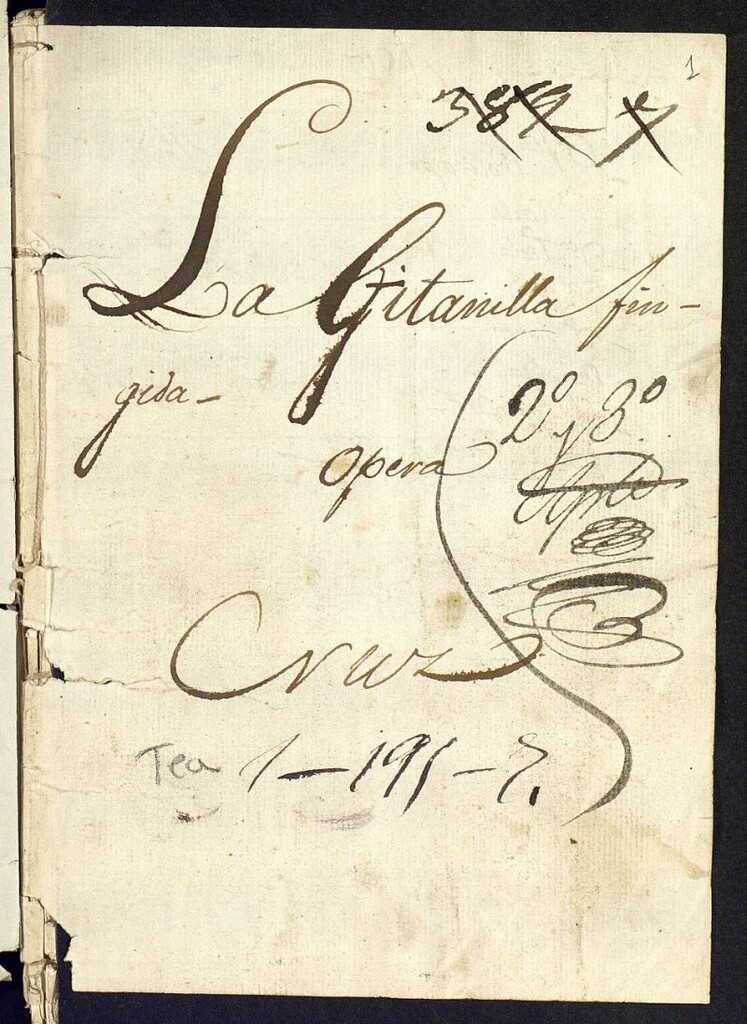 1
389-7
La Gitanilla fin-
gida-
opera
2º y 3º
Cruz
Tea 1-191-7.